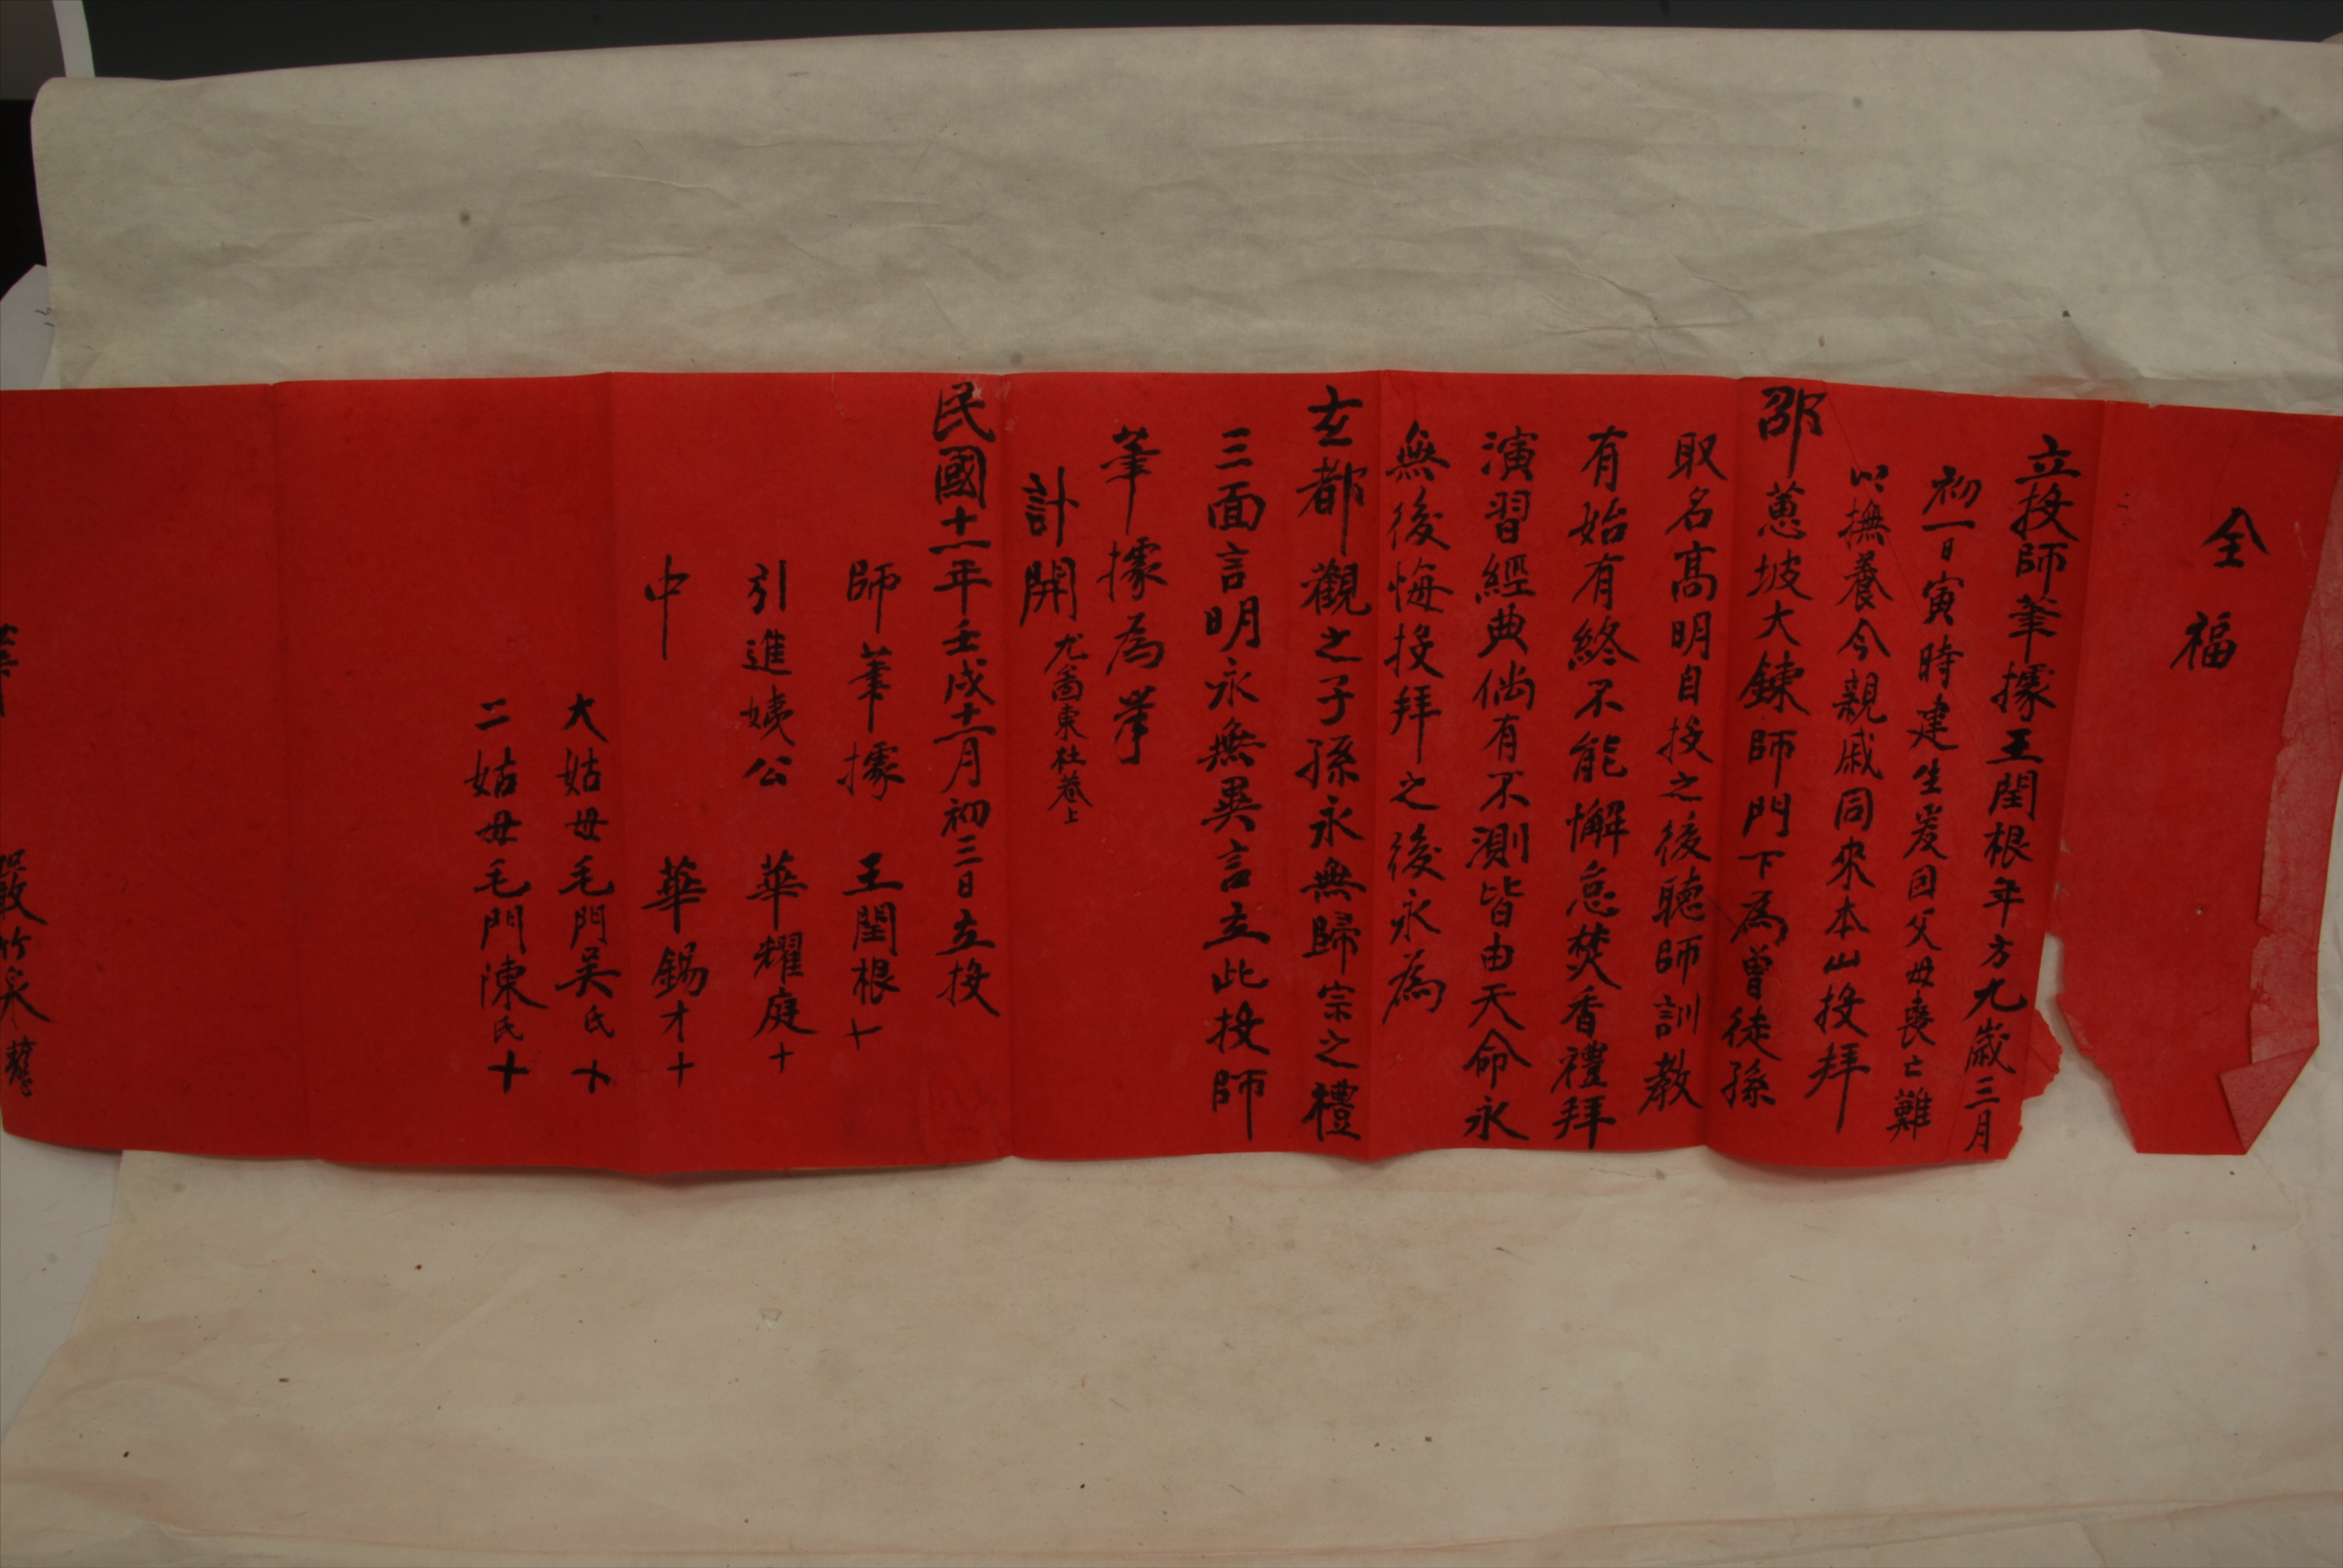 全福
立投師筆據王閏根年方九歲三月
初一日寅時建生爰因父母喪亡難
以撫養今親戚同來本山投拜
邵蒽坡大鍊師門下為曾徒孫
取名高明自投之後聽師訓教
有始有終不能懈怠焚香禮拜
演習經典倘有不測皆由天命永
無後悔投拜之後永為
玄都觀之子孫永無歸宗之禮
三面言明永無異言立此投師
筆據為挙
計開 尤啚東社巷上
民國十一年壬戌十一月初三日立投
師筆據 王閏根十
引進姨公 華耀庭十
中 華錫才十
大姑母毛門吳氏十
二姑母毛門陳氏十
嚴竹泉